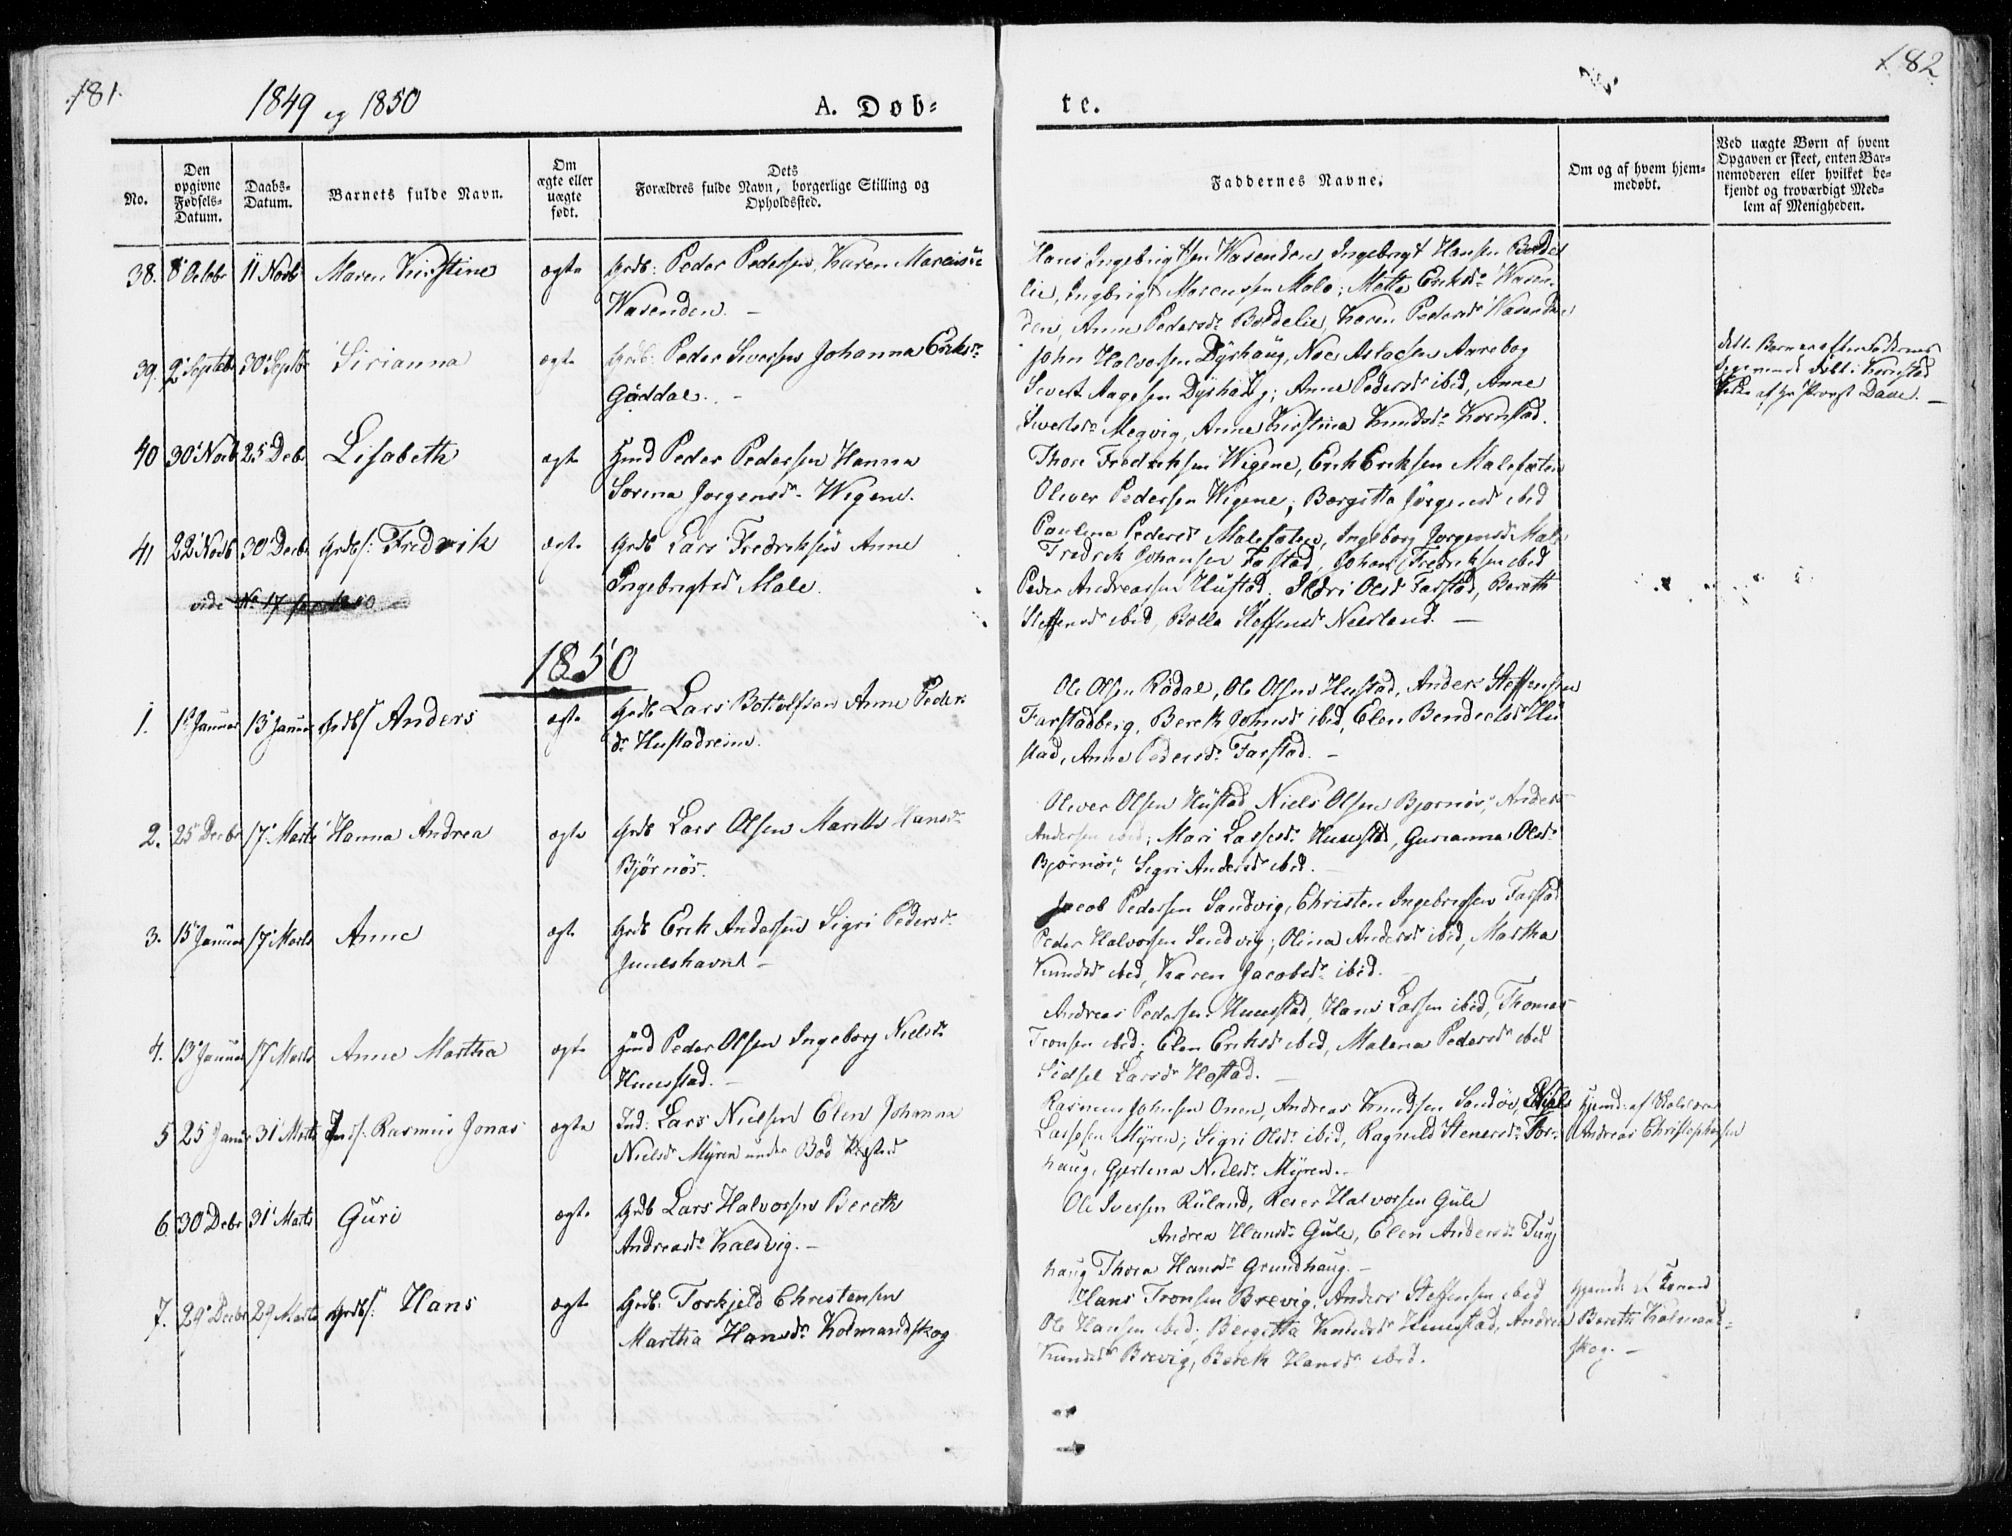 181.
1849 og 1850
A. Døb=
te.
182
No.
Den
opgivne
Fødsels-
Datum.
Daabs-
Datum.
Barnets fulde Navn.
Om
ægte eller
uægte
født.
Dets
Forældres fulde Navn, borgerlige Stilling og
Opholdssted.
Faddernes Navne.
Om og af hvem hjem-
medøbt.
Ved uægte Børn af hvem
Opgaven er skeet, enten Bar-
nemoderen eller hvilket be-
kjendt og troværdigt Med-
lem af Menigheden.
38. 8 Octobr 11 Novb Maren Kirstine ægte Grdb: Peder Pedersen, Karen
Wasenden. –
Hans Ingebrigtsen Wasenden Ingebrigt Hansen Boldel
lie, Ingbrigt Marcussen Male; Mette Eriksdr Wasen-
den, Anne Pedersdr Boldelie, Karen Pedersdr Wasenden
39. 2 Septebr 30 Septbr Sirianna ægte Grdb: Peder Siversen Johanna Eriksdr
Gaddal. –
John Halvorsen Dyrhaug, Noe Aslacsen Aarebog
Sivert Aagesen Dyrhaug; Anne Pedersdr ibid, Anne
Sivertsdr Megvig, Anne Kirstina Knudsdr Kornstad.
dette Barn er efter Faderens
i Kornstad
af Hr Provst Daae. –
40 30 Novb 25 Debr Lisabeth ægte Hmd Peder Pedersen Hanna
Sorena Jorgensdr Wigene.
Thore Fredriksen Wigene, Erich Eriksen Malefæten
Oliver Pedersen Wigene; Bergitta Jörgensdr ibid
Paulina Pedersdr Malefæten, Ingeborg Jorgensdr Male
41 22 Novb 30 Decbr Grdbs: Fredrik ægte Grdb Lars Fredriksen Anne
Ingebrigtsdr Male.
Fredrik Johansen Farstad, Johan Fredriksen ibid
Peder Andreassen Hustad; Ildri Olsdr Farstad, Bereth
Steffensdr ibid, Bolla Steffensdr Neerland. –
vide No 17
1850
1. 1 Januar 13 Januar Grdbs Anders ægte Grdb Lars Botolfsen Anne Peders
dr Hustadreins.
Ole Olsen Rödal, Ole Olsen Hustad, Anders Steffensen
Farstadberg, Bereth Johnsdr ibid, Elen Bendeetsdr Hu
stad, Anne Pedersdr Farstad. –
2. 25 Decbr 17 Marts Hanna Andrea ægte Grdb Lars Olsen Marethe Hansdr
Björnör.
Oliver Olsen Hustad, Niels Olsen Bjornör, Anders
Andersen ibid; Mari Lassesdr Huusstad, Gurianna Olsdr
Björnör, Sigri Andersdr ibid. –
3. 15 Januar 17 Marts Anne ægte Grdb Erik Andersen Sigri Pedersdr
Juulshavnl –
Jacob Pedersen Sandvig, Christen Ingebrigtsen Farstad
Peder Halvorsen Sandvig; Olina Andersdr ibid, Martha
Knudsdr ibid, Karen Jacobsdr ibid.
4. 13 Januar 17 Marts Anne Martha ægte Hmd Peder Olsen Ingeborg Nielsdr
Huusstad. –
Andreas Pedersen Huusstad, Hans Larsen ibid, Thomas
Tronsen ibid; Elen Eriksdr ibid, Malena Pedersdr ibid
Sidsel Larsdr Hostad. –
5 25 Januar 31 Marts Inds: Rasmus Jonas ægte Ind: Lars Nielsen Elen Johanna
Nielsdr Myren under Bod
Rasmus Johnsen Onen, Andreas Knudsen Sandöe, Niels
Lassesen Myren; Sigri Olsdr ibid, Ragnild Stenersdr Tor-
haug, Gjertina Nielsdr Myren. –
Hjemd: af
Andreas Christophersen
6 30 Debr 31 Marts Guri ægte Grdb Lars Halvorsen Bereth
Andreasdr Kalsvig. –
Ole Iversen Ruland, Reier Halvorsen Gule
Andrea Hansdr Gule, Elen Andersdr Tug
haug Thora Hansdr Grundhaug. –
7. 29 Decbr 29 Marts Grdbs: Hans ægte Grdb: Torkjeld Christensen
Martha Hansdr Kolmandskog
Hans Tronsen Brevig, Anders Steffensen ibid
Ole Hansen ibid; Bergitta Knudsdr Huusstad, Andrea
Knudsdr Brevig, Bereth Hansdr ibid.
Hjemd: af
Bereth Kolmand-
skog. –